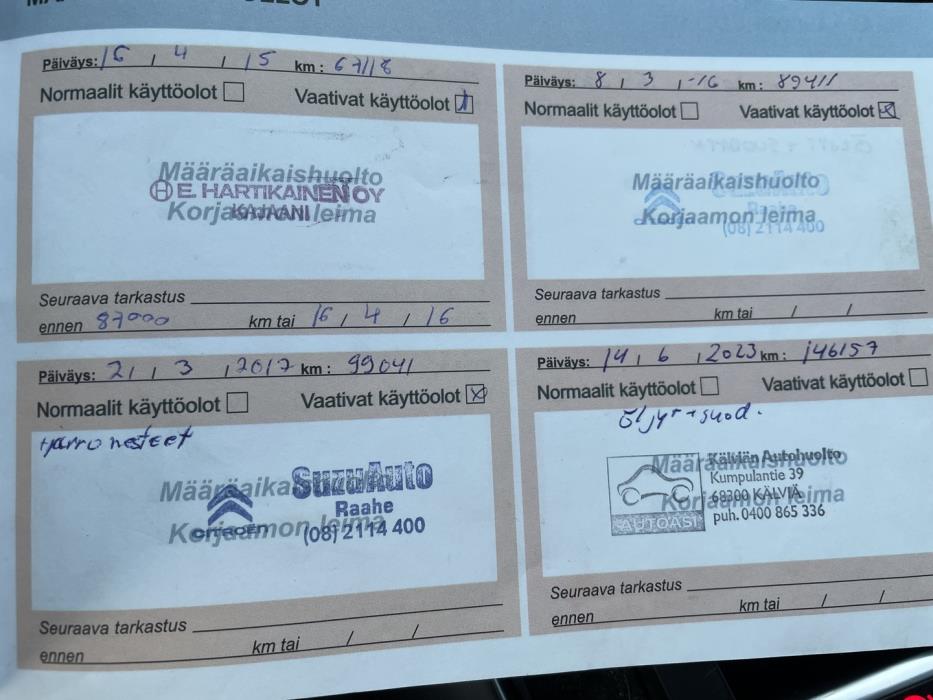 Päiväys: 16 , 4 , 15 km: 67118
Normaalit käyttöolot Vaativat käyttöolot
Määräaikaishuolto
E. HARTIKAINEN OY
Korjaamon leima
KAJAANI
Seuraava tarkastus
ennen 87000 km tai 16 / 4 / 16
Päiväys: 8 , 3 , -16 km: 89411
Normaalit käyttöolot Vaativat käyttöolot
Määräaikaishuolto
Raahe
Korjaamon leima
(08) 2114 400
Seuraava tarkastus
ennen km tai / /
Päiväys: 21 , 3 , 2017 km: 99041
Normaalit käyttöolot Vaativat käyttöolot
Jarrunesteet
Määräaikaishuolto
SuzuAuto
Raahe
CITROËN
Korjaamon leima
(08) 2114 400
Seuraava tarkastus
ennen km tai / /
Päiväys: 14 , 6 , 2023 km: 146157
Normaalit käyttöolot Vaativat käyttöolot
Öljyt + suod.
Määräaikaishuolto
Kälviän Autohuolto
Kumpulantie 39
68300 KÄLVIÄ
Korjaamon leima
puh. 0400 865 336
AUTOASI
Seuraava tarkastus
ennen km tai / /